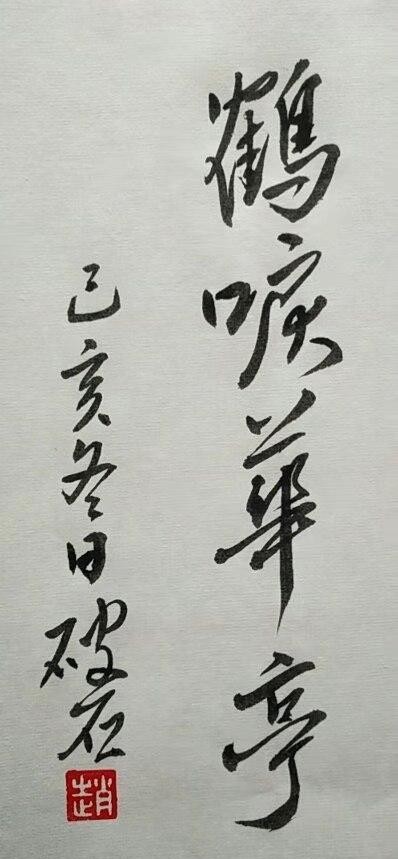 鶴唳華亭
己亥冬日破石
趙